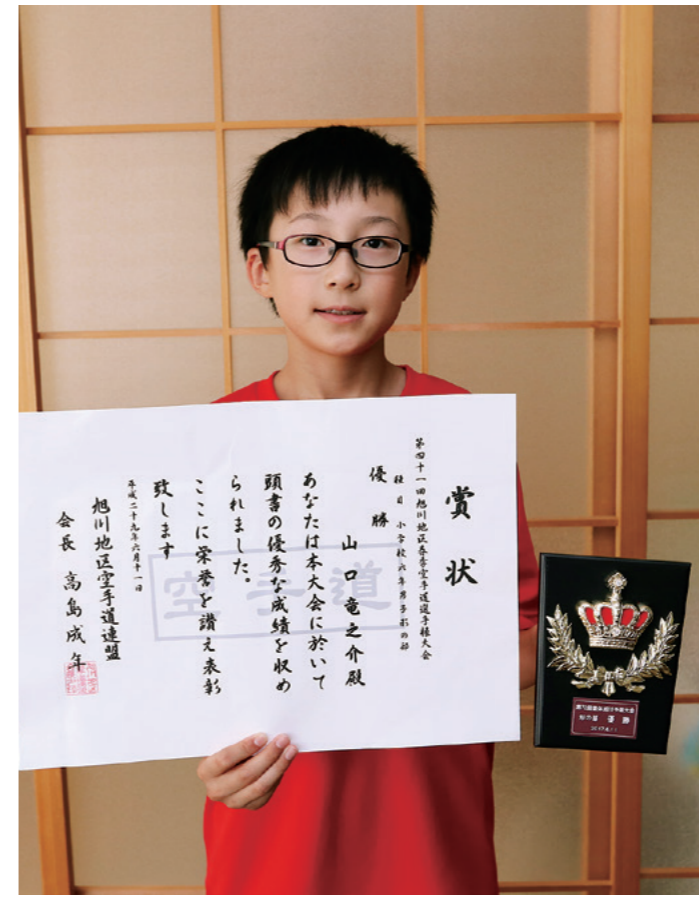 賞状
第四十一回旭川地区春季空手道選手権大会
種目 小学校六年男子形の部
優勝
山口竜之介殿
あなたは本大会に於いて
頭書の優秀な成績を収め
られました。
ここに栄誉を讃え表彰
致します
平成二十九年六月十一日
旭川地区空手道連盟
会長 高島成年
空手道
形の部 優勝
2017.6.11